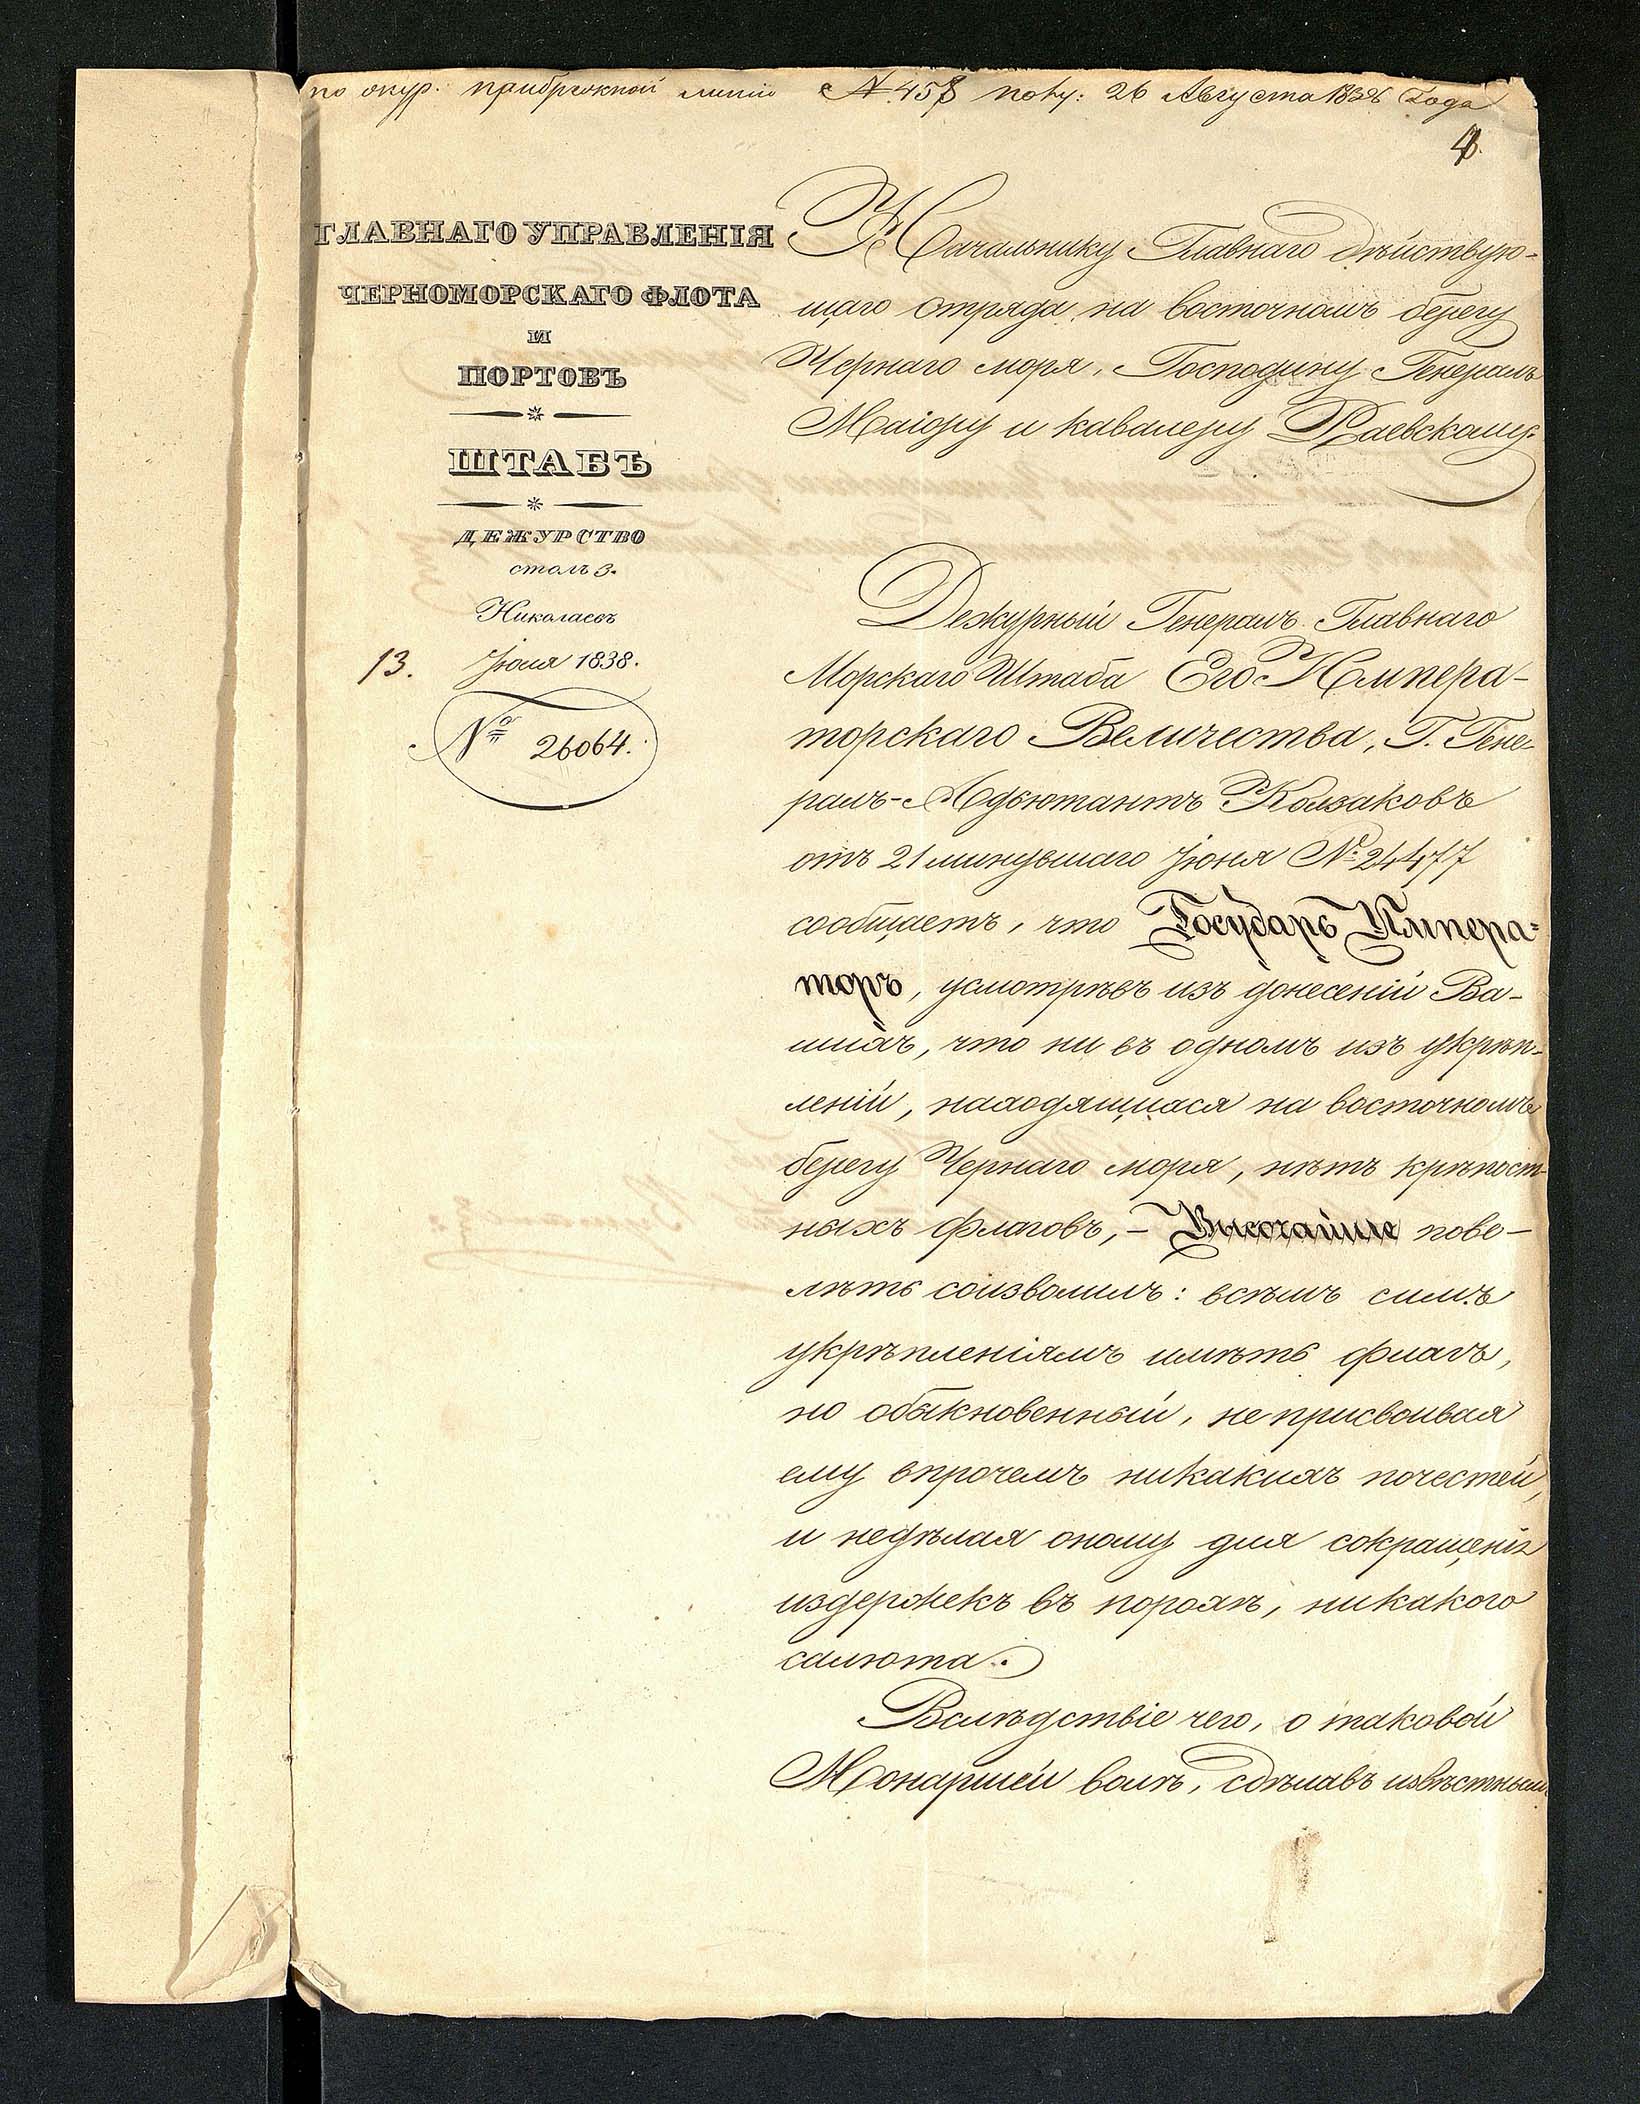 по окур. прибрежной линіи № 458 полу: 26 Августа 1838 Года
ГЛАВНАГО УПРАВЛЕНІЯ
ЧЕРНОМОРСКАГО ФЛОТА
И
ПОРТОВЪ
ШТАБЪ
ДЕЖУРСТВО
столъ 3.
Николаевъ
13. Іюля 1838.
№ 26064.
Начальнику Главнаго действую-
щаго отряда на восточномъ берегу
Чернаго моря, Господину Генералъ
Маіору и кавалеру Раевскому.
Дежурный Генералъ Главнаго
Морскаго Штаба Его Импера-
торскаго Величества, Г. Гене-
ралъ-Адъютантъ Колзаковъ
отъ 21 минувшаго Іюня № 24477
сообщаетъ, что Государь Импера-
торъ, усмотрѣвъ изъ донесеній Ва-
шихъ, что ни въ одномъ изъ укрѣп-
леній, находящихся на восточномъ
берегу Чернаго моря, нѣтъ крѣпост-
ныхъ флаговъ,- Высочайше пове-
лѣть соизволилъ: всѣмъ симъ
укрѣпленіямъ имѣть флагъ,
но обыкновенный, не присвоивая
ему впрочемъ никакихъ почестей,
и недѣлая оному для сокращенія
издержекъ въ порохѣ, никакого
салюта.
Вслѣдствіе чего, о таковой
Монаршей волѣ, сдѣлавъ извѣстнымъ